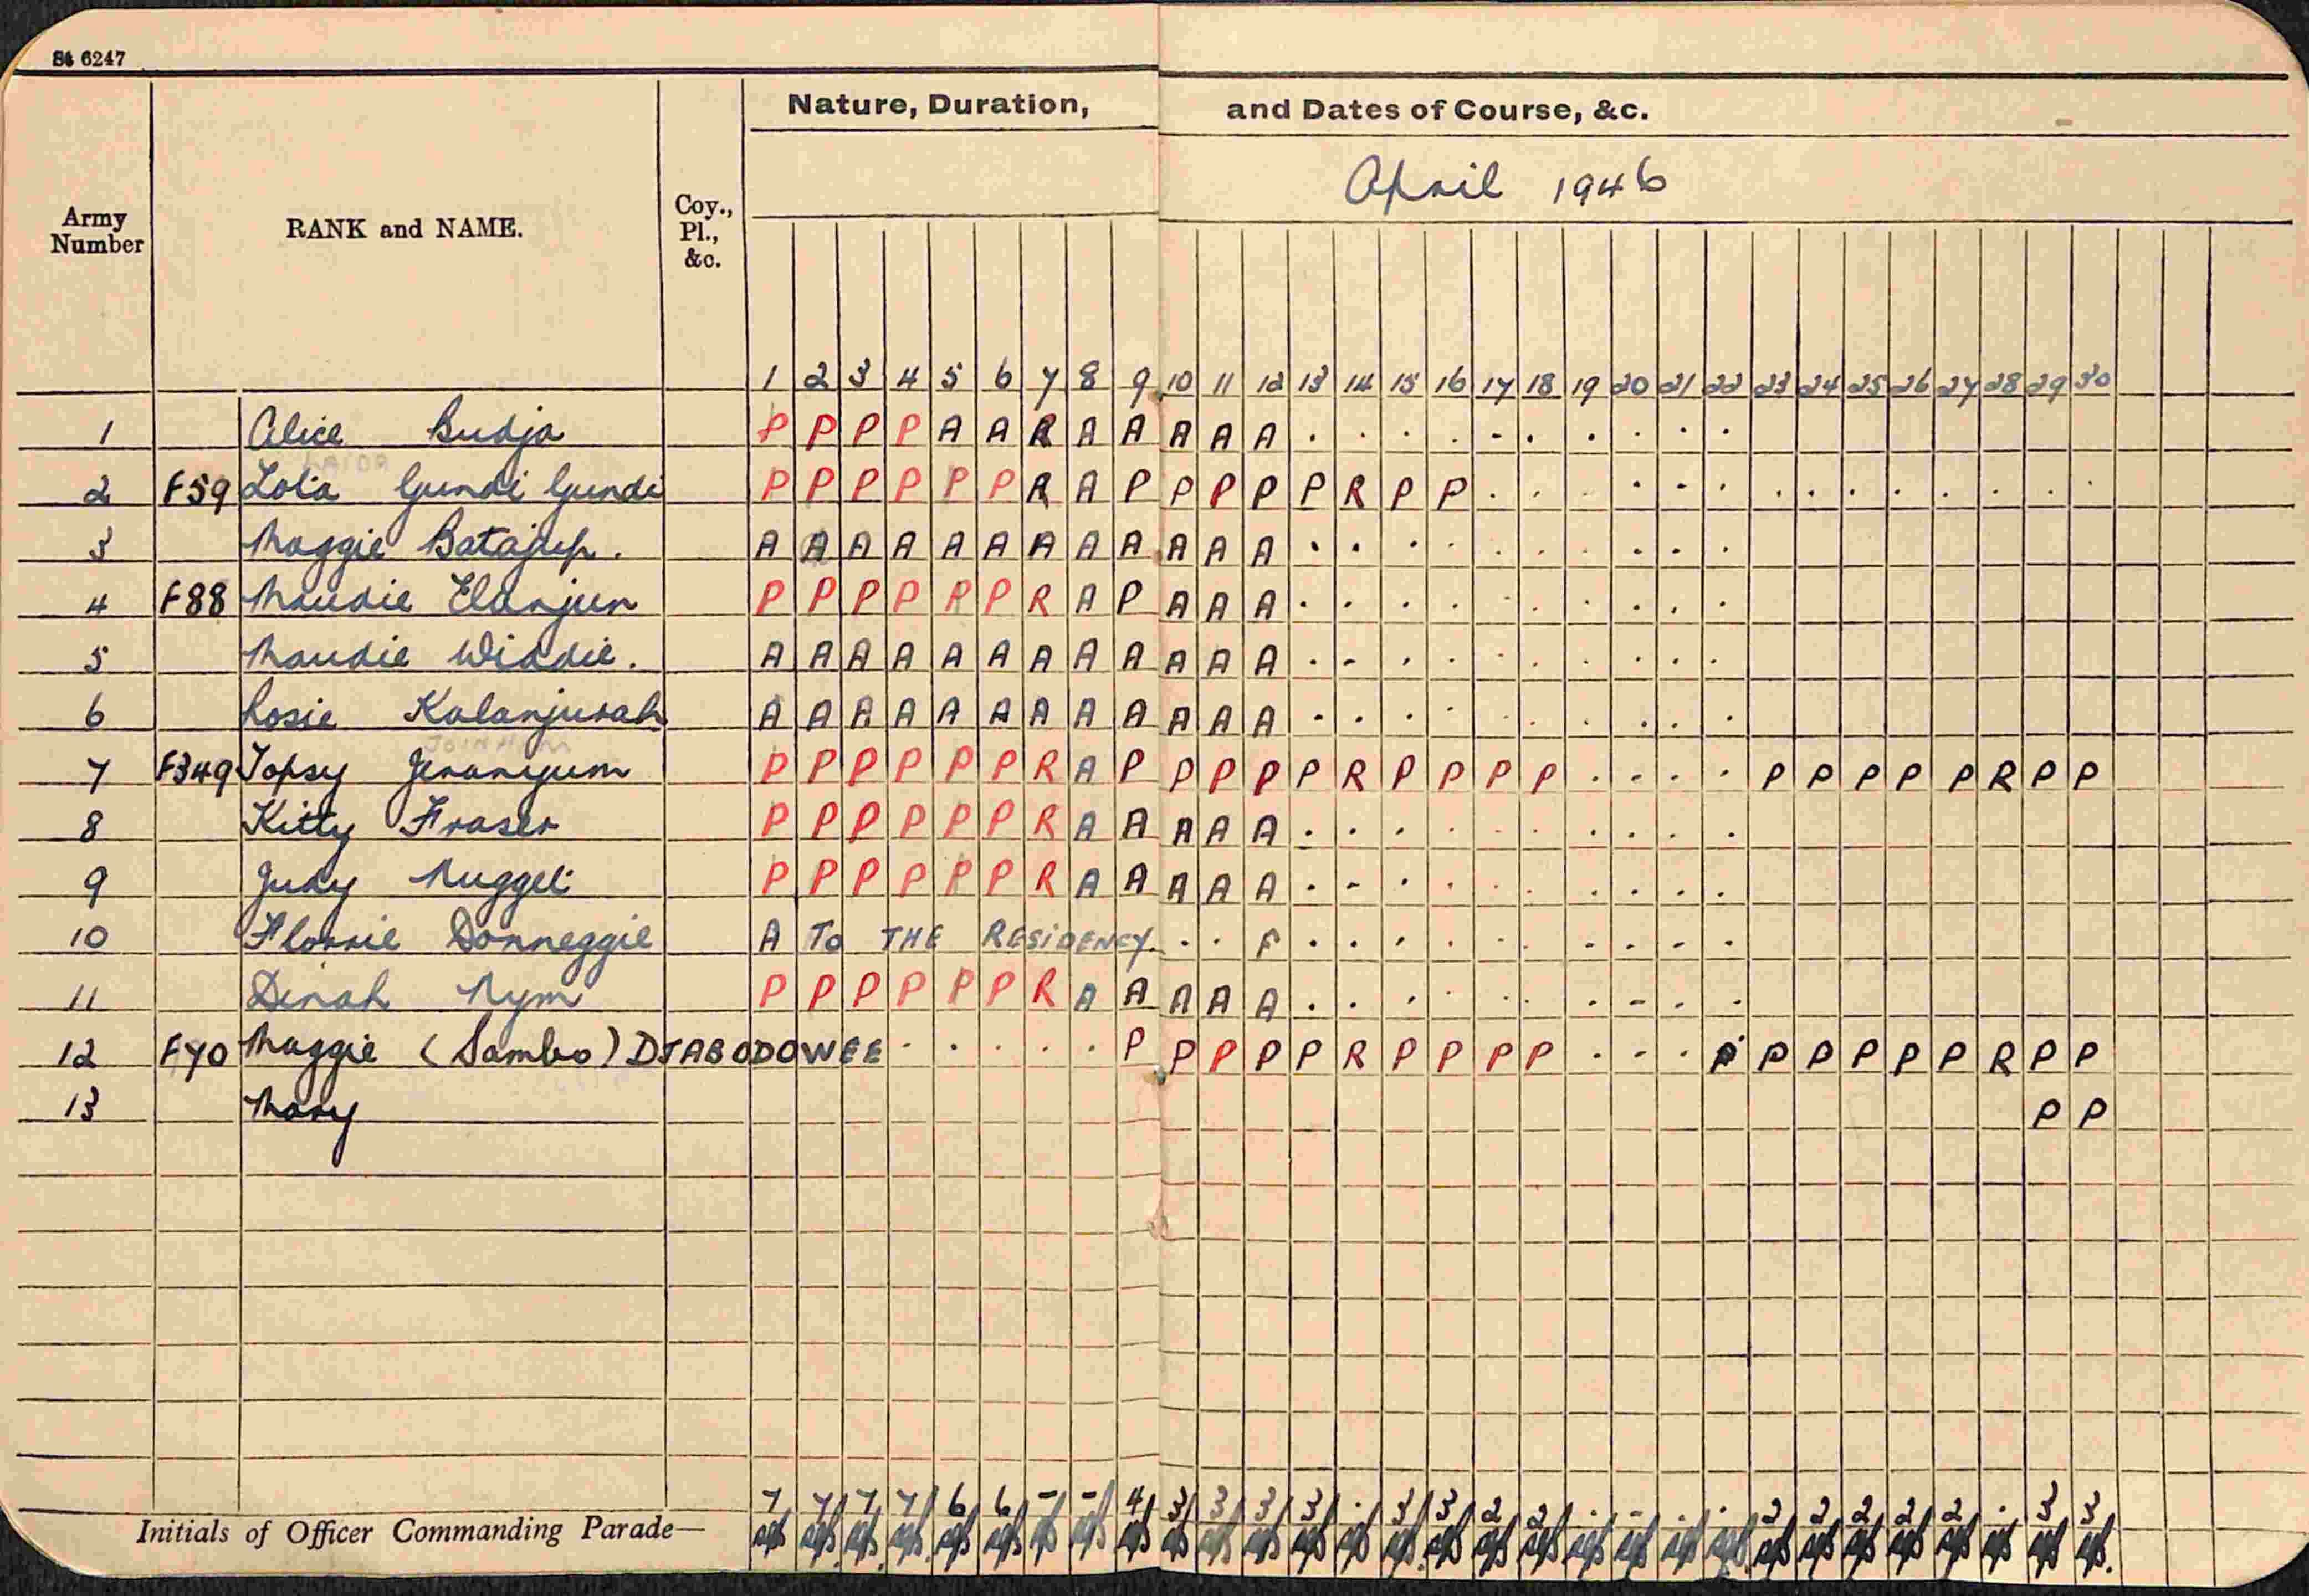 St 6247
Nature, Duration, and Dates of Course, &c.
April 1946
Army Number RANK and NAME. Coy., Pl., &c.
1 2 3 4 5 6 7 8 9 10 11 12 13 14 15 16 17 18 19 20 21 22 23 24 25 26 27 28 29 30
1 Alice Budja P P P P A A R A A A A A . . . . . . . . . .
LAIDA
2 F59 Lola Gundi Gundi P P P P P P R A P P P P P R P P . . . . . . . . . . . . . .
3 Maggie Batajup. A A A A A A A A A A A A . . . . . . . . . .
4 F88 Maudie Elanjun P P P P P P R A P A A A . . . . . . . . . .
5 Maudie Widdie. A A A A A A A A A A A A . - . . . . . . . .
6 Rosie Kalanjurah A A A A A A A A A A A A . . . . . . . . . .
7 F349 Topsy Jenanyum P P P P P P R A P P P P P R P P P P . . . . P P P P P R P P
8 Kitty Fraser P P P P P P R A A A A A . . . . . . . . . .
9 Judy Nugget P P P P P P R A A A A A . - . . . . . . . .
10 Florrie Donneggie A To THE RESIDENCY . . F . . . . . . . . . .
11 Dinah Nym P P P P P P R A A A A A . . . . . . . - . .
12 F70 Maggie (Sambo) DJABODOWEE . . . . . P P P P P R P P P P . . . P P P P P P R P P
13 Mary P P
7 7 7 7 6 6 - - 4 3 3 3 3 . 3 3 2 2 . - . . 2 2 2 2 2 . 3 3
Initials of Officer Commanding Parade—